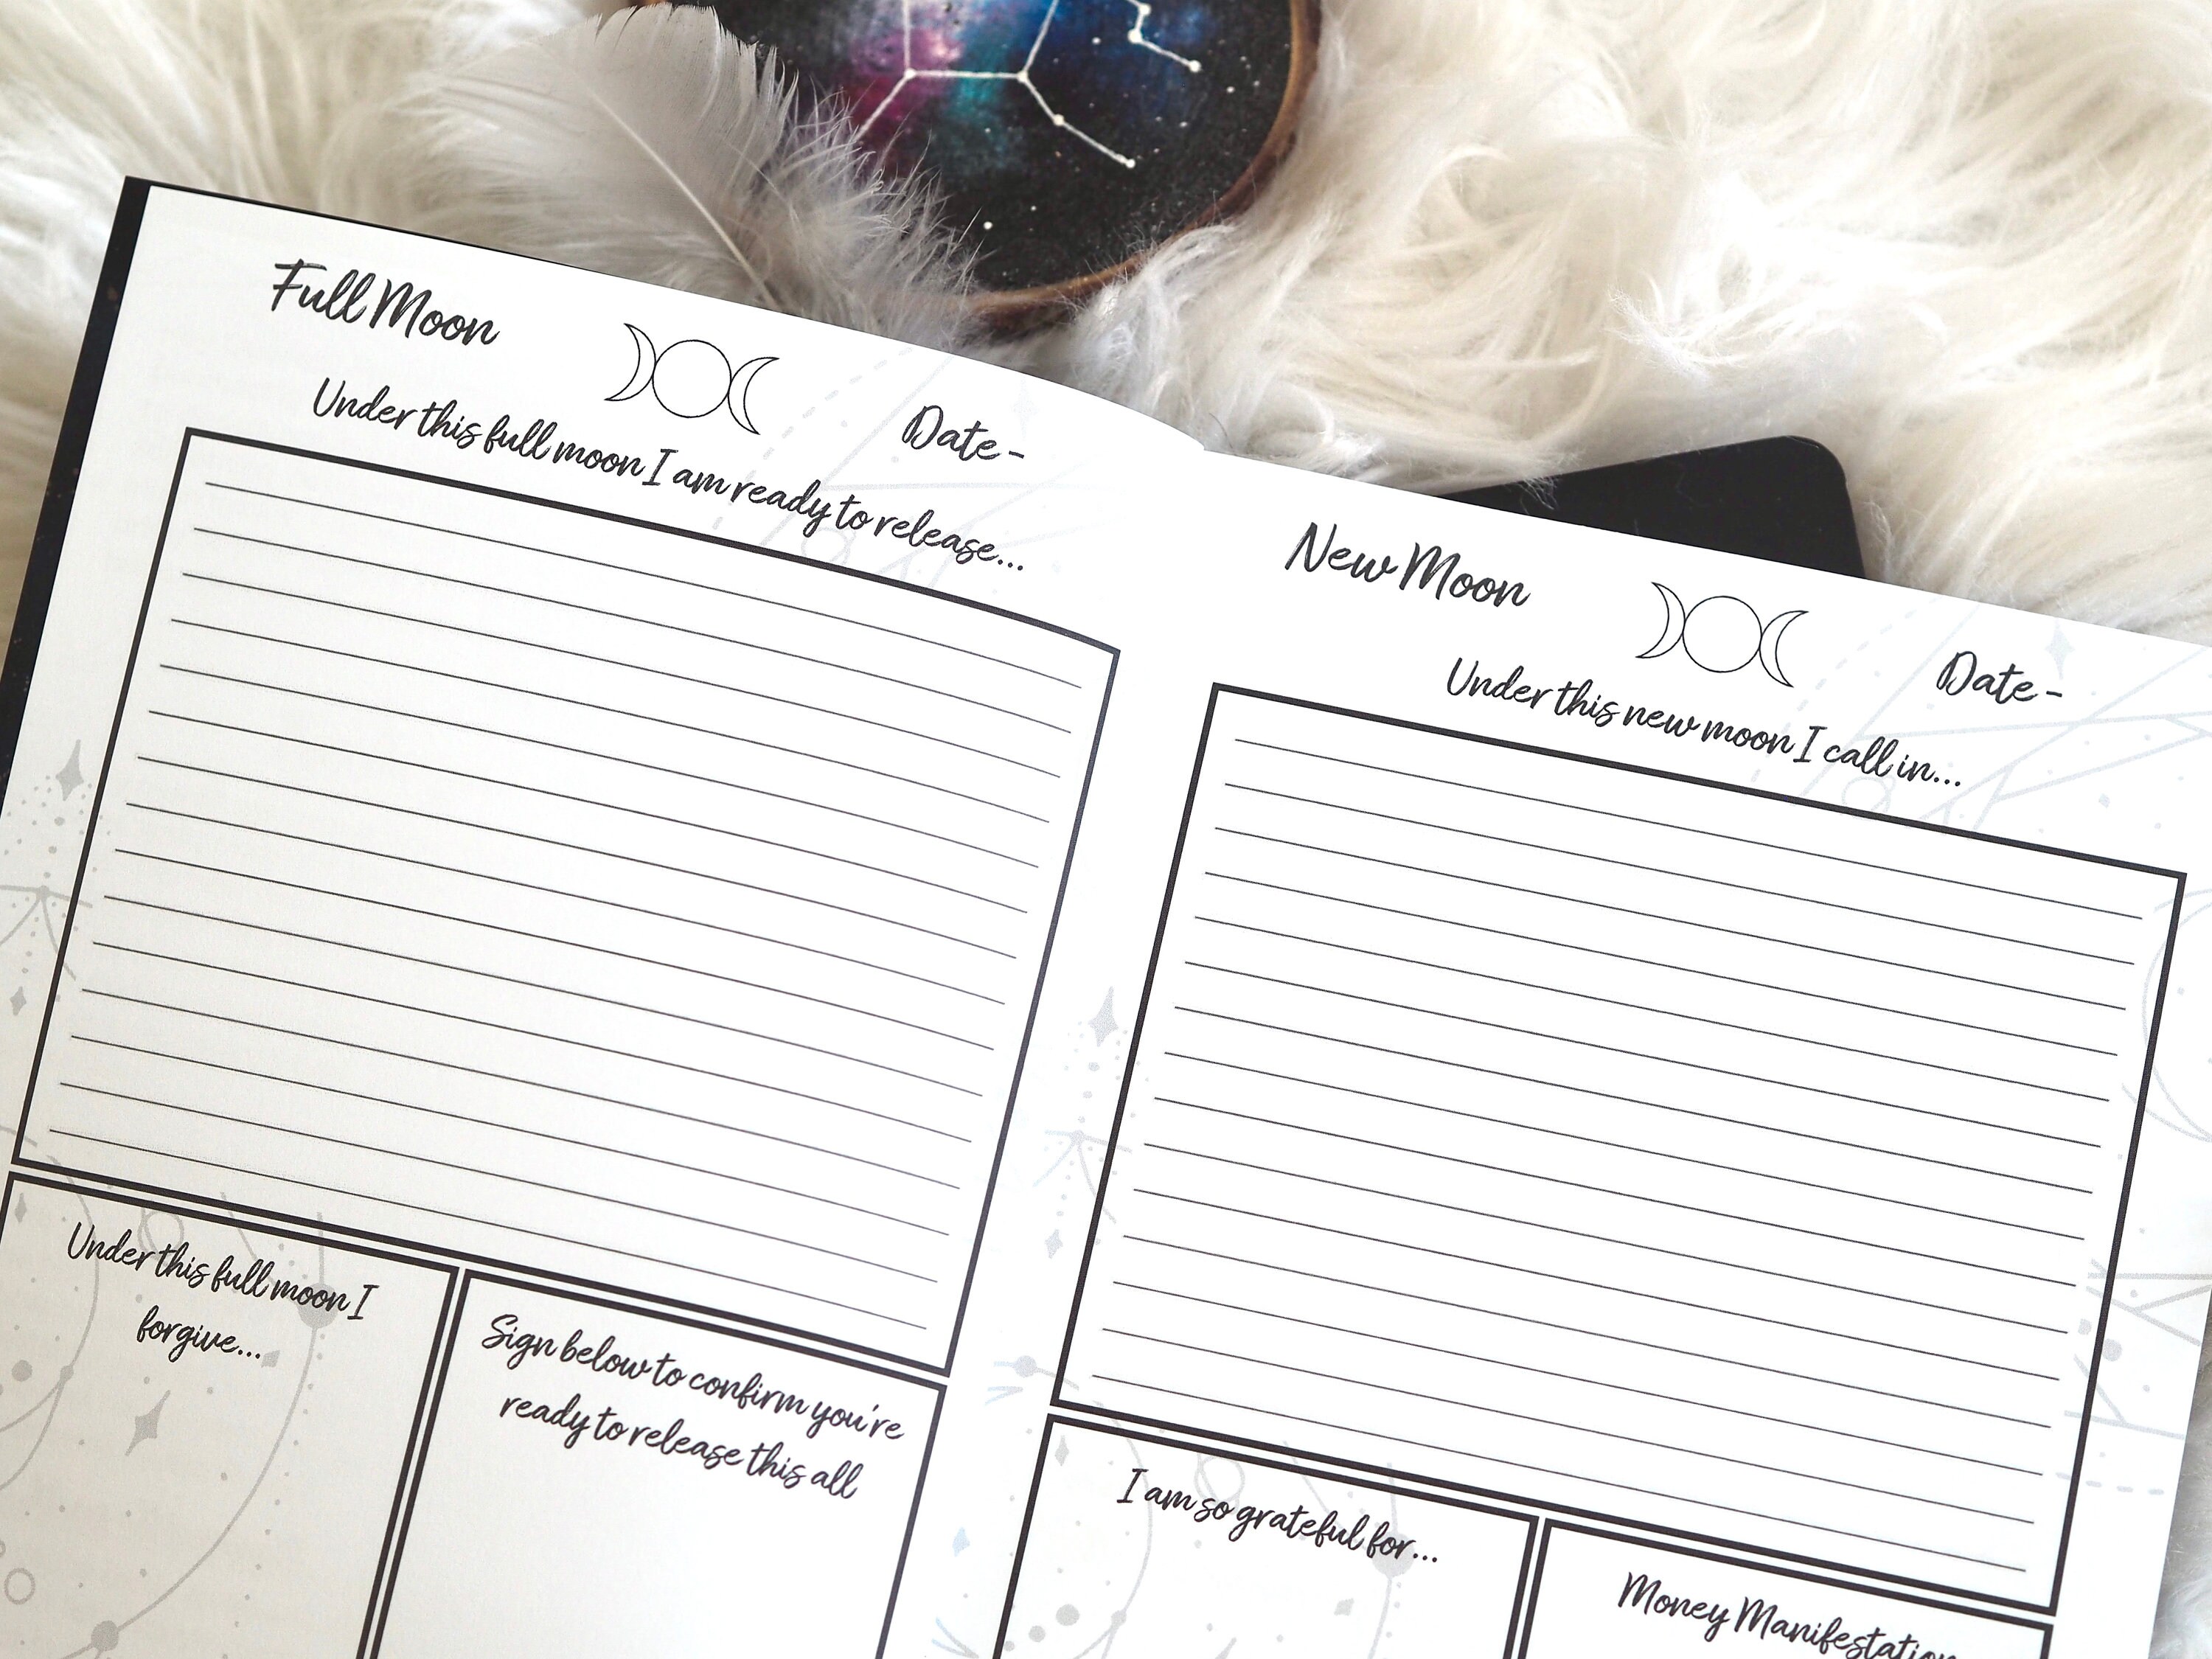 Full Moon
Date -
Under this full moon I am ready to release...
Under this full moon I
forgive...
Sign below to confirm you're
ready to release this all
New Moon
Date -
Under this new moon I call in...
I am so grateful for...
Money Manifestation